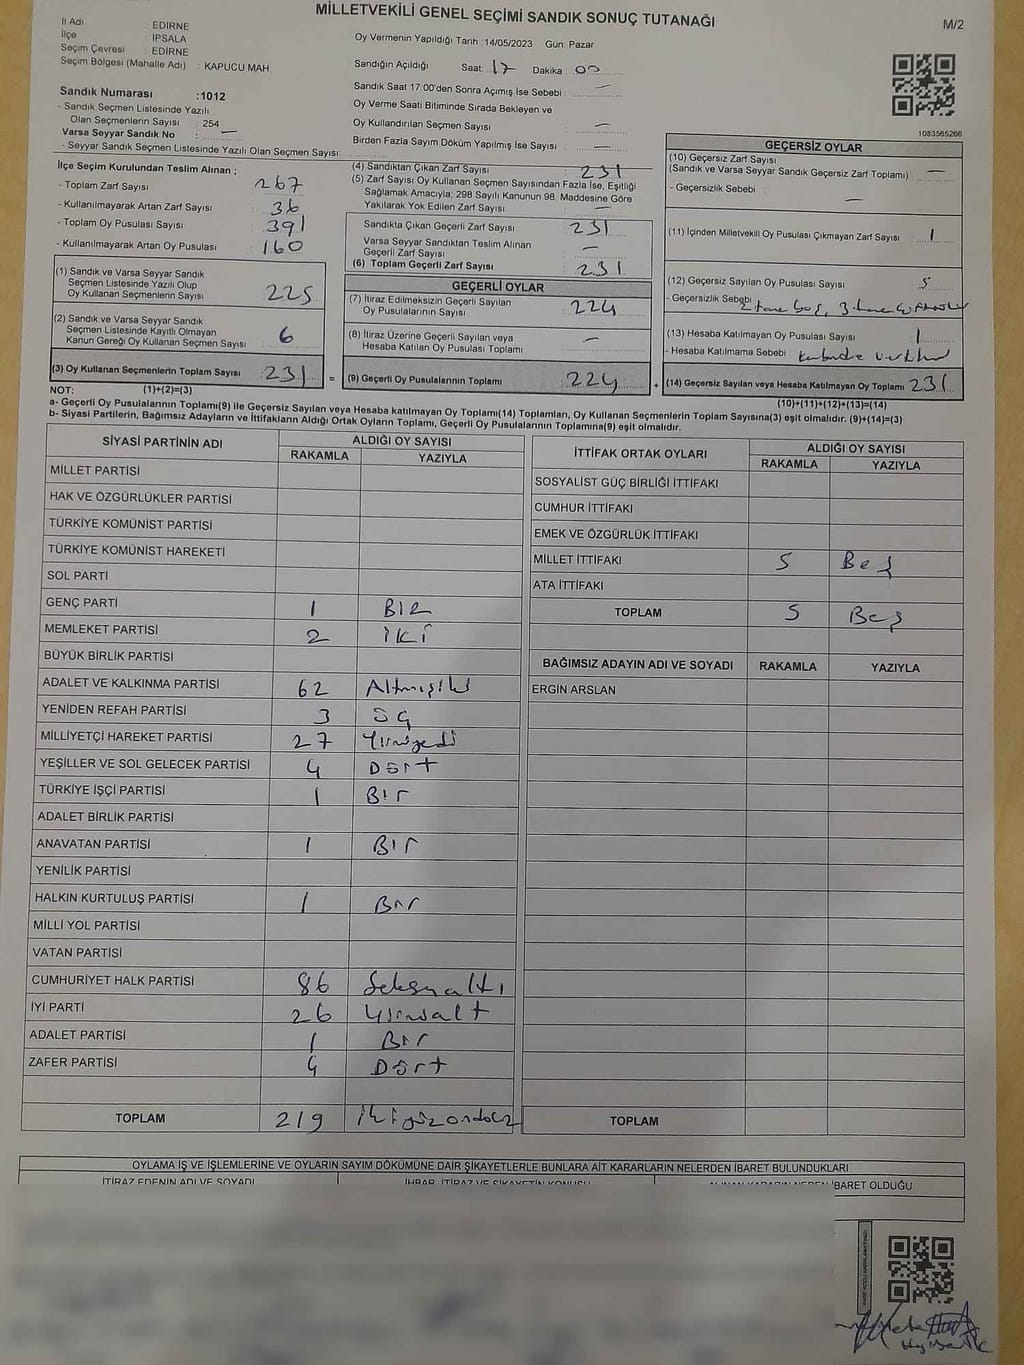 MİLLETVEKİLİ GENEL SEÇİMİ SANDIK SONUÇ TUTANAĞI
M/2
İl Adı : EDİRNE
İlçe : İPSALA
Seçim Çevresi : EDİRNE
Seçim Bölgesi (Mahalle Adı) : KAPUCU MAH.
Sandık Numarası :1012
- Sandık Seçmen Listesinde Yazılı
Olan Seçmenlerin Sayısı : 254
Varsa Seyyar Sandık No : —
- Seyyar Sandık Seçmen Listesinde Yazılı Olan Seçmen Sayısı:
Oy Vermenin Yapıldığı Tarih :14/05/2023 Gün: Pazar
Sandığın Açıldığı Saat: 17 Dakika : 00
Sandık Saat 17:00'den Sonra Açımış İse Sebebi : —
Oy Verme Saati Bitiminde Sırada Bekleyen ve
Oy Kullandırılan Seçmen Sayısı : —
Birden Fazla Sayım Döküm Yapılmış İse Sayısı : —
1083565266
İlçe Seçim Kurulundan Teslim Alınan ;
- Toplam Zarf Sayısı : 267
- Kullanılmayarak Artan Zarf Sayısı : 36
- Toplam Oy Pusulası Sayısı : 391
- Kullanılmayarak Artan Oy Pusulası : 160
(1) Sandık ve Varsa Seyyar Sandık
Seçmen Listesinde Yazılı Olup
Oy Kullanan Seçmenlerin Sayısı : 225
(2) Sandık ve Varsa Seyyar Sandık
Seçmen Listesinde Kayıtlı Olmayan
Kanun Gereği Oy Kullanan Seçmen Sayısı : 6
(3) Oy Kullanan Seçmenlerin Toplam Sayısı : 231
(4) Sandıktan Çıkan Zarf Sayısı : 231
(5) Zarf Sayısı Oy Kullanan Seçmen Sayısından Fazla İse, Eşitliği
Sağlamak Amacıyla; 298 Sayılı Kanunun 98. Maddesine Göre
Yakılarak Yok Edilen Zarf Sayısı : —
Sandıkta Çıkan Geçerli Zarf Sayısı : 231
Varsa Seyyar Sandıktan Teslim Alınan
Geçerli Zarf Sayısı : —
(6) Toplam Geçerli Zarf Sayısı : 231
GEÇERLİ OYLAR
(7) İtiraz Edilmeksizin Geçerli Sayılan
Oy Pusulalarının Sayısı : 224
(8) İtiraz Üzerine Geçerli Sayılan veya
Hesaba Katılan Oy Pusulası Toplamı : —
= (9) Geçerli Oy Pusulalarının Toplamı : 224
GEÇERSİZ OYLAR
(10) Geçersiz Zarf Sayısı
(Sandık ve Varsa Seyyar Sandık Geçersiz Zarf Toplamı) : —
- Geçersizlik Sebebi : —
(11) İçinden Milletvekili Oy Pusulası Çıkmayan Zarf Sayısı : 1
(12) Geçersiz Sayılan Oy Pusulası Sayısı : 5
- Geçersizlik Sebebi : 2 tane boş, 3 tane
(13) Hesaba Katılmayan Oy Pusulası Sayısı : 1
- Hesaba Katılmama Sebebi :
+ (14) Geçersiz Sayılan veya Hesaba Katılmayan Oy Toplamı : 231
NOT: (1)+(2)=(3)
(10)+(11)+(12)+(13)=(14)
a- Geçerli Oy Pusulalarının Toplamı(9) ile Geçersiz Sayılan veya Hesaba katılmayan Oy Toplamı(14) Toplamları, Oy Kullanan Seçmenlerin Toplam Sayısına(3) eşit olmalıdır. (9)+(14)=(3)
b- Siyasi Partilerin, Bağımsız Adayların ve İttifakların Aldığı Ortak Oyların Toplamı, Geçerli Oy Pusulalarının Toplamına(9) eşit olmalıdır.
SİYASİ PARTİNİN ADI ALDIĞI OY SAYISI
RAKAMLA YAZIYLA
MİLLET PARTİSİ
HAK VE ÖZGÜRLÜKLER PARTİSİ
TÜRKİYE KOMÜNİST PARTİSİ
TÜRKİYE KOMÜNİST HAREKETİ
SOL PARTİ
GENÇ PARTİ 1 BİR
MEMLEKET PARTİSİ 2 İKİ
BÜYÜK BİRLİK PARTİSİ
ADALET VE KALKINMA PARTİSİ 62 Altmışiki
YENİDEN REFAH PARTİSİ 3 üç
MİLLİYETÇİ HAREKET PARTİSİ 27 Yirmiyedi
YEŞİLLER VE SOL GELECEK PARTİSİ 4 Dört
TÜRKİYE İŞÇİ PARTİSİ 1 Bir
ADALET BİRLİK PARTİSİ
ANAVATAN PARTİSİ 1 Bir
YENİLİK PARTİSİ
HALKIN KURTULUŞ PARTİSİ 1 Bir
MİLLİ YOL PARTİSİ
VATAN PARTİSİ
CUMHURİYET HALK PARTİSİ 86 Seksenaltı
İYİ PARTİ 26 Yirmialtı
ADALET PARTİSİ 1 Bir
ZAFER PARTİSİ 4 Dört
TOPLAM 219 ikiyüzondokuz
İTTİFAK ORTAK OYLARI ALDIĞI OY SAYISI
RAKAMLA YAZIYLA
SOSYALİST GÜÇ BİRLİĞİ İTTİFAKI
CUMHUR İTTİFAKI
EMEK VE ÖZGÜRLÜK İTTİFAKI
MİLLET İTTİFAKI 5 Beş
ATA İTTİFAKI
TOPLAM 5 Beş
BAĞIMSIZ ADAYIN ADI VE SOYADI RAKAMLA YAZIYLA
ERGİN ARSLAN
TOPLAM
OYLAMA İŞ VE İŞLEMLERİNE VE OYLARIN SAYIM DÖKÜMÜNE DAİR ŞİKAYETLERLE BUNLARA AİT KARARLARIN NELERDEN İBARET BULUNDUKLARI
İTİRAZ EDENİN ADI VE SOYADI İHBAR, İTİRAZ VE ŞİKAYETİN KONUSU ALINAN KARARIN NEDEN İBARET OLDUĞU